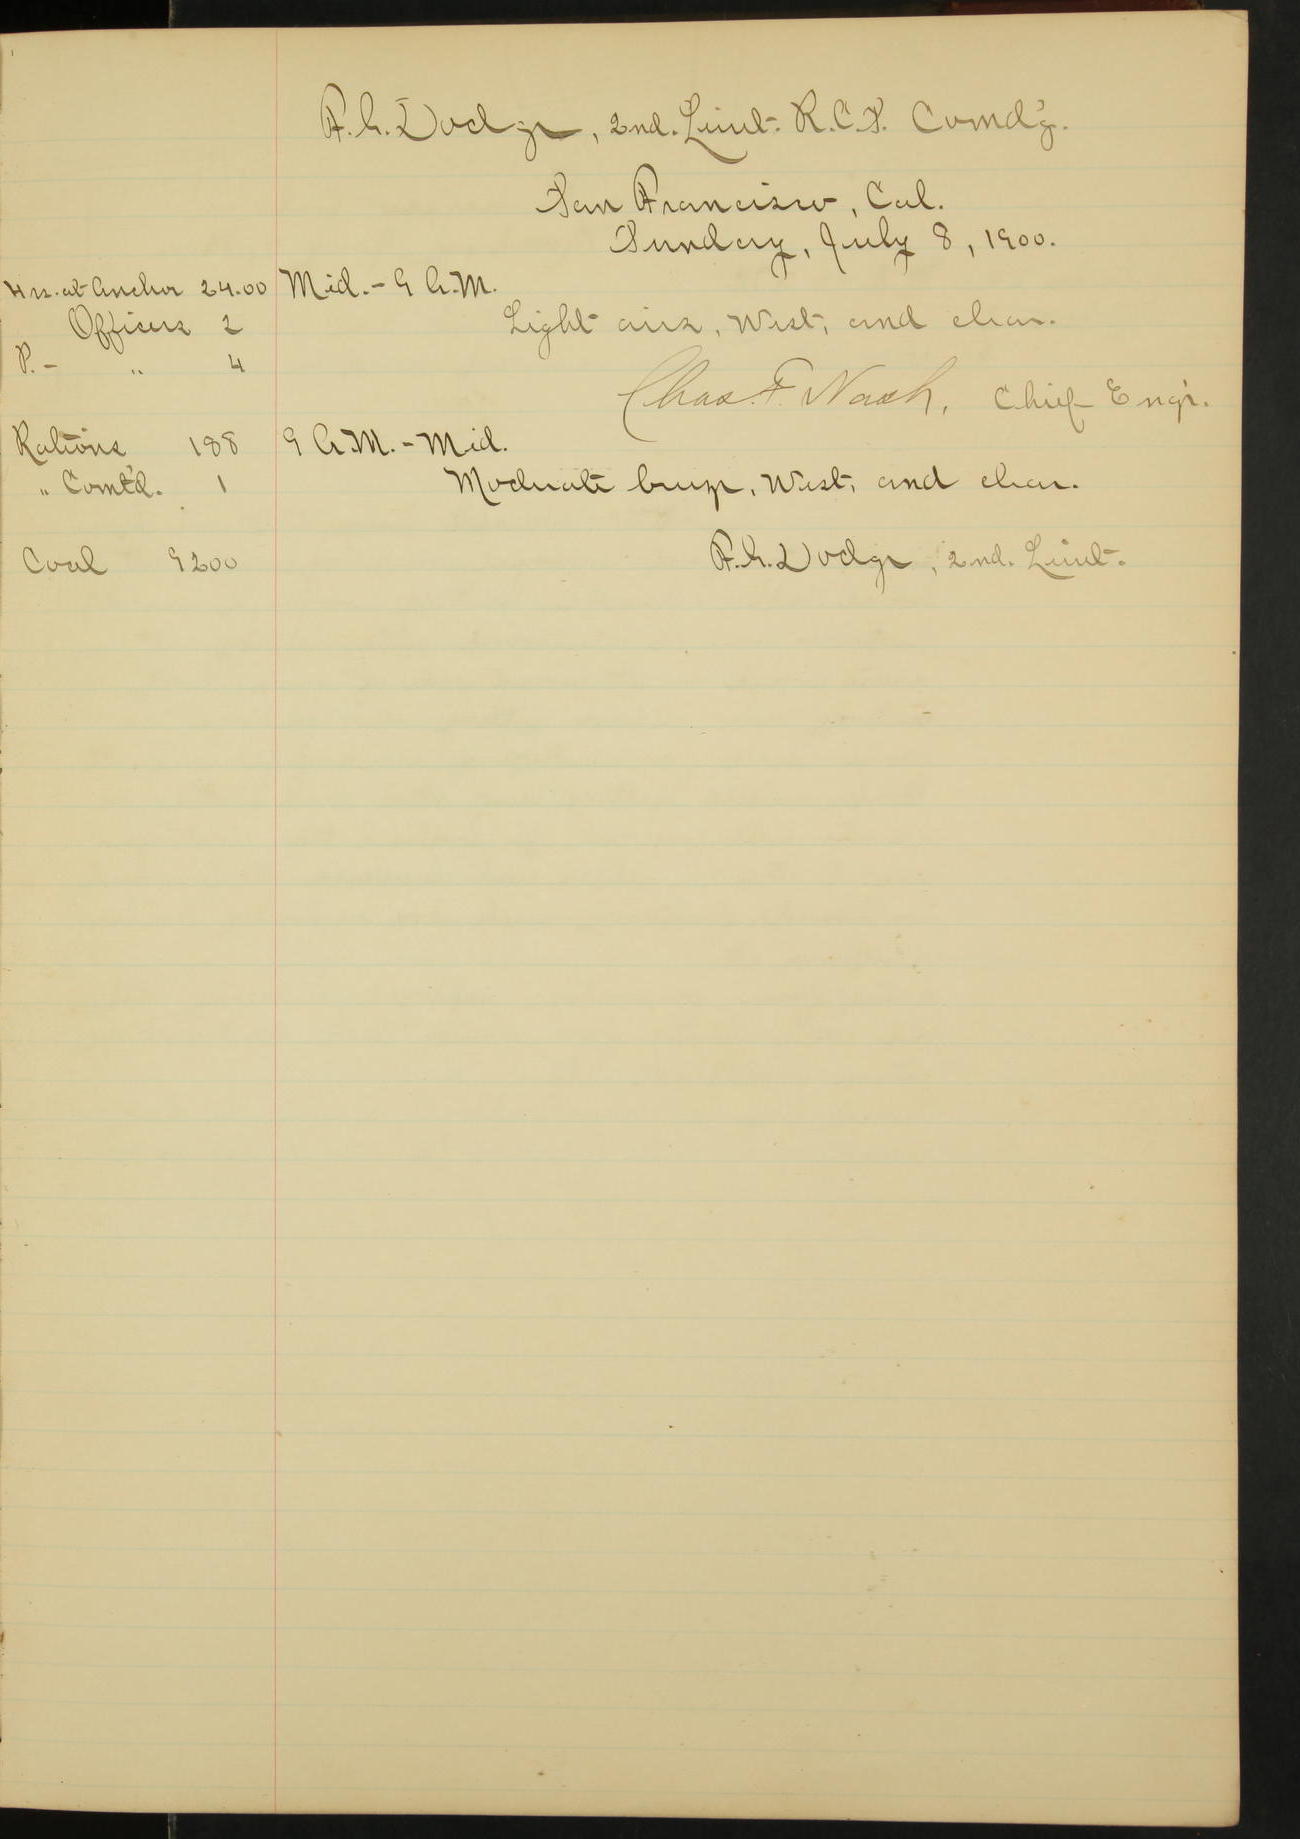 F.G. Dodge, 2nd. Lieut. R.C.S. Comd'g.
San Francisco, Cal.
Sunday, July 8, 1900.
Hrs. at Anchor 24.00 Mid. - 9 A.M.
Officers 2 Light airs, West, and clear.
P. - " 4
Chas. F. Nash, Chief Engr.
Rations 188 9 A.M. - Mid.
" Comt'd. 1 Moderate breeze, West, and clear.
Coal 9200 F.G. Dodge, 2nd. Lieut.